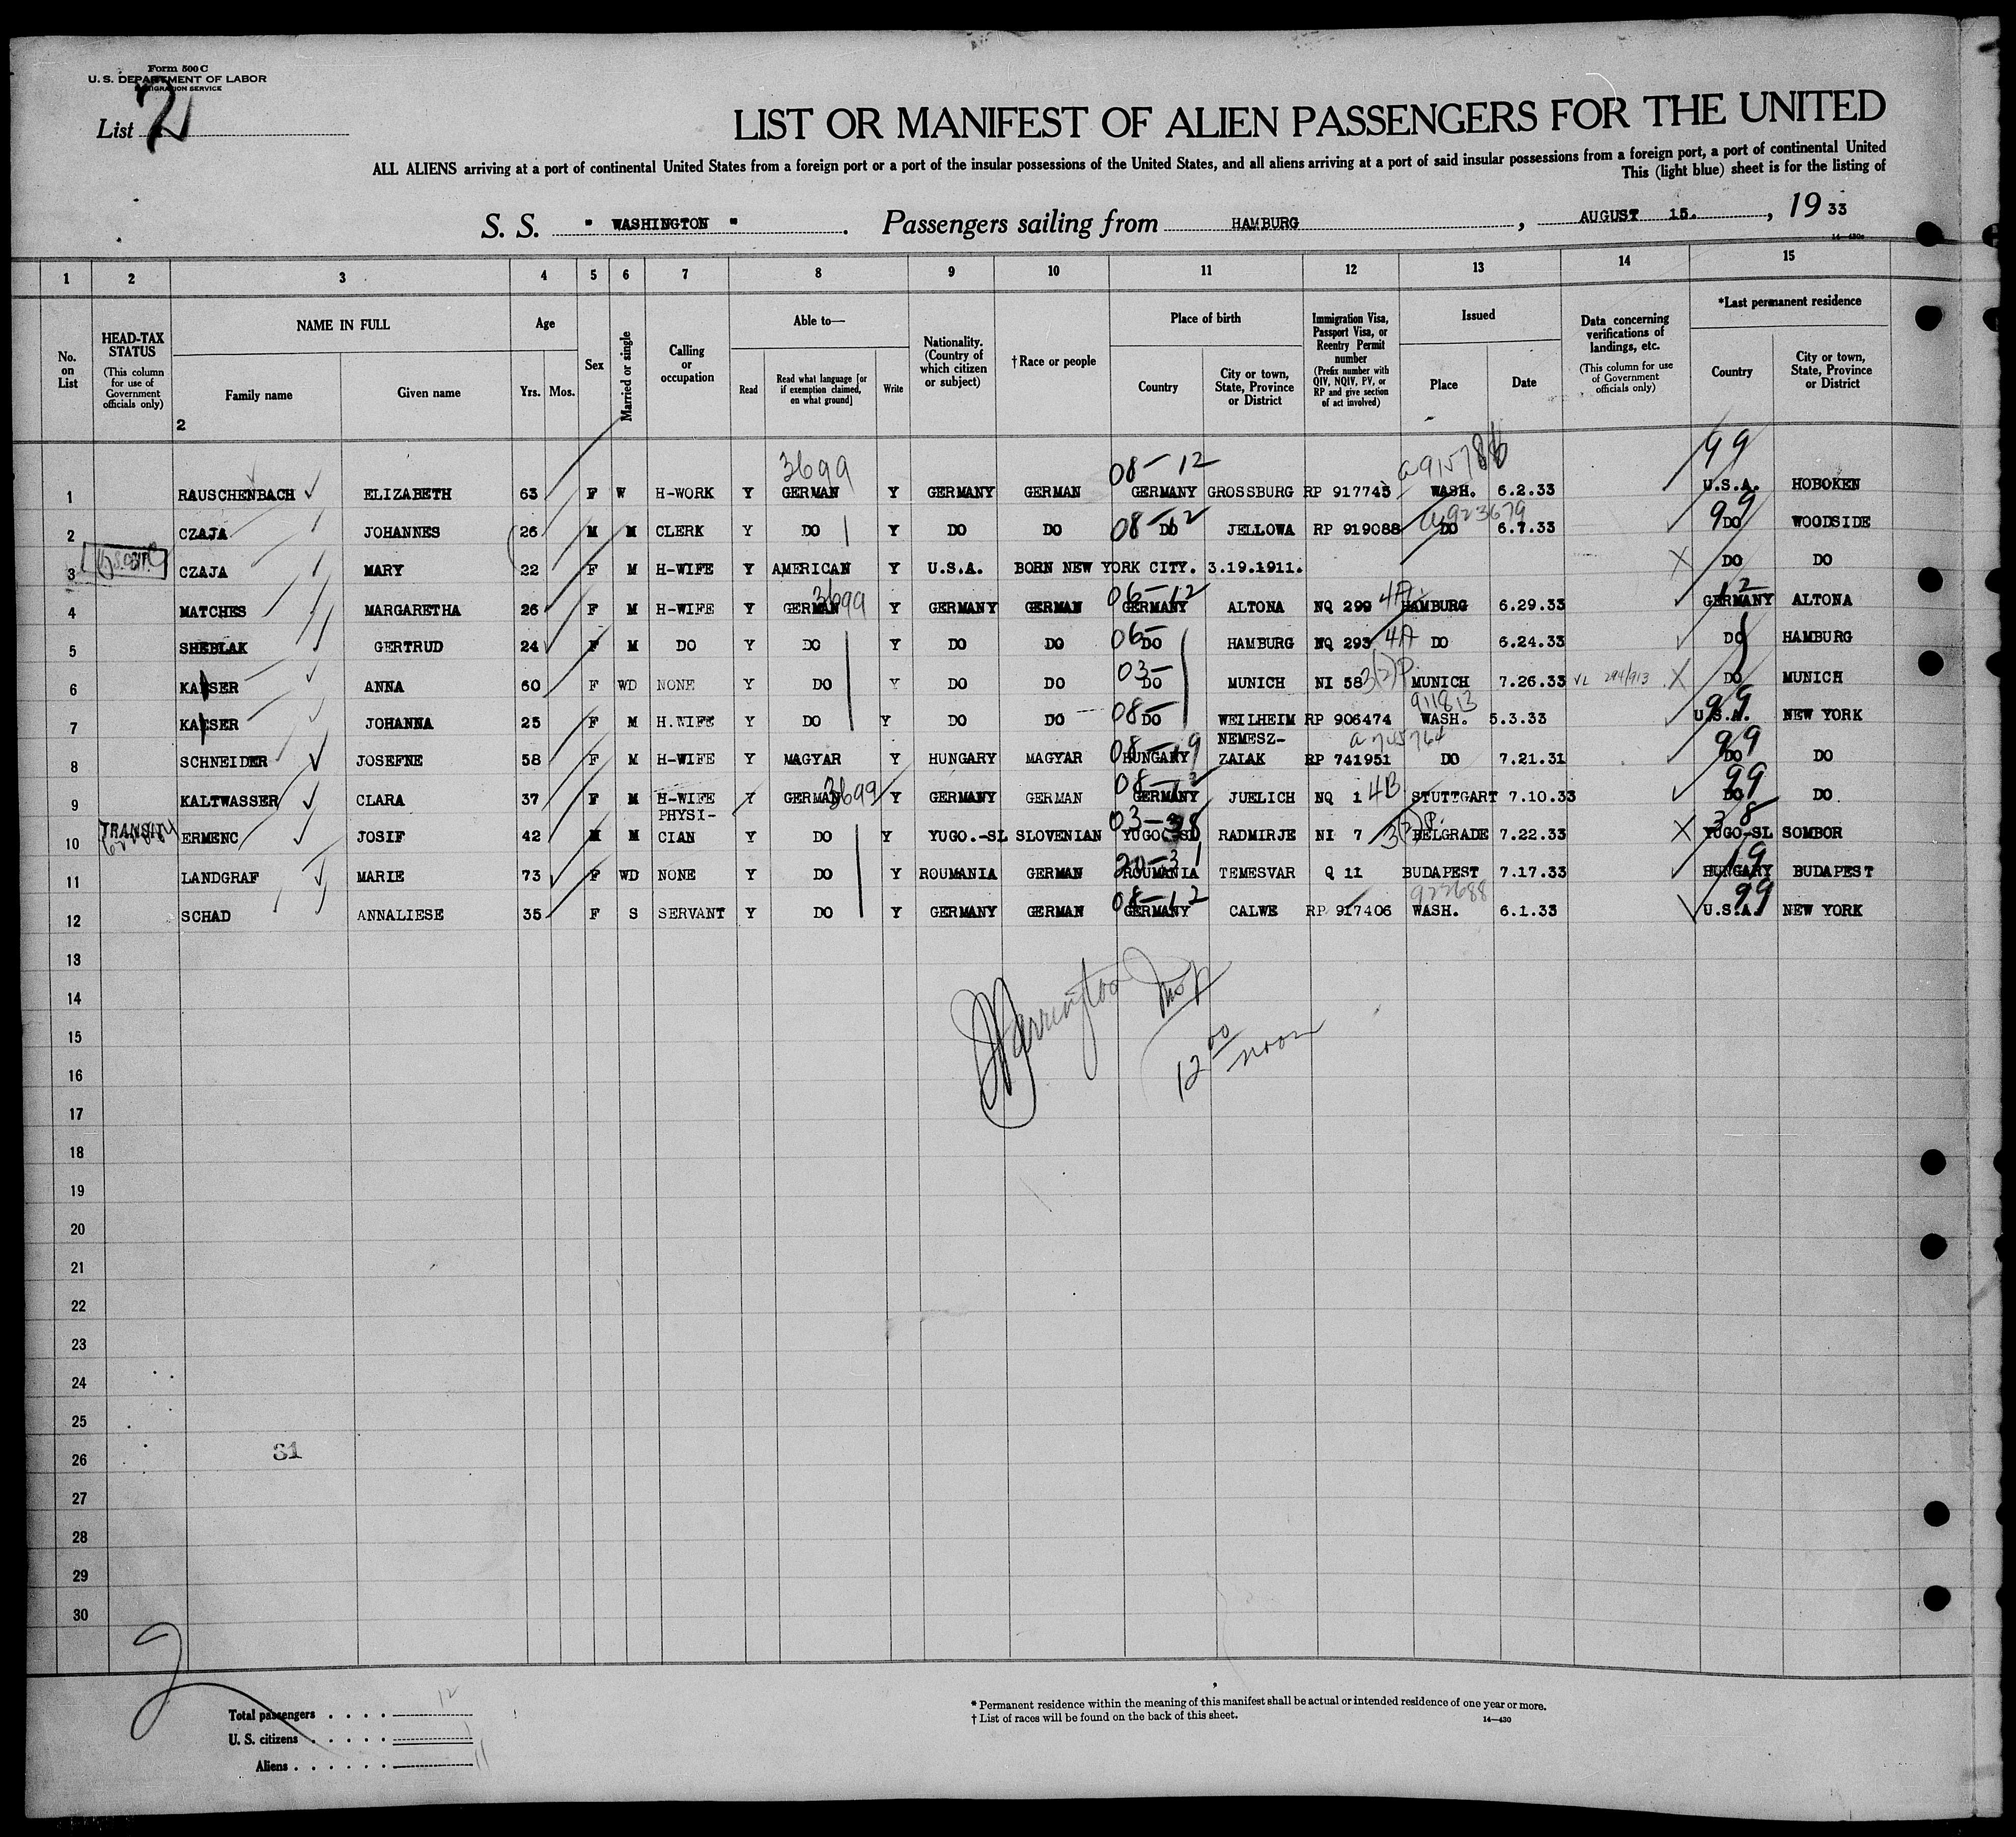 Form 500 C
U. S. DEPARTMENT OF LABOR
IMMIGRATION SERVICE
List 2
LIST OR MANIFEST OF ALIEN PASSENGERS FOR THE UNITED
ALL ALIENS arriving at a port of continental United States from a foreign port or a port of the insular possessions of the United States, and all aliens arriving at a port of said insular possessions from a foreign port, a port of continental United
This (light blue) sheet is for the listing of
S. S. " WASHINGTON " . Passengers sailing from HAMBURG , AUGUST 15. , 19 33
14-430a
1 2 3 4 5 6 7 8 9 10 11 12 13 14 15
No. on List
HEAD-TAX STATUS (This column for use of Government officials only)
NAME IN FULL
Family name
Given name
2
Age
Yrs. Mos.
Sex
Married or single
Calling or occupation
Able to—
Read
Read what language [or if exemption claimed, on what ground]
Write
Nationality. (Country of which citizen or subject)
† Race or people
Place of birth
Country
City or town, State, Province or District
Immigration Visa, Passport Visa, or Reentry Permit number (Prefix number with QIV, NQIV, PV, or RP and give section of act involved)
Issued
Place
Date
Data concerning verifications of landings, etc. (This column for use of Government officials only)
*Last permanent residence
Country
City or town, State, Province or District
3699 08-12 a915786 99
1 RAUSCHENBACH ELIZABETH 63 F W H-WORK Y GERMAN Y GERMANY GERMAN GERMANY GROSSBURG RP 917743 WASH. 6.2.33 U.S.A. HOBOKEN
08-12 a923679 99
2 CZAJA JOHANNES 26 M M CLERK Y DO Y DO DO DO JELLOWA RP 919088 DO 6.7.33 DO WOODSIDE
3 CZAJA MARY 22 F M H-WIFE Y AMERICAN Y U.S.A. BORN NEW YORK CITY. 3.19.1911. X DO DO
3699 06-12 4A 12
4 MATCHES MARGARETHA 26 F M H-WIFE Y GERMAN Y GERMANY GERMAN GERMANY ALTONA NQ 299 HAMBURG 6.29.33 GERMANY ALTONA
06- 4A
5 SHEBLAK GERTRUD 24 F M DO Y DO Y DO DO DO HAMBURG NQ 293 DO 6.24.33 DO HAMBURG
03- 3(2)P.
6 KAISER ANNA 60 F WD NONE Y DO Y DO DO DO MUNICH NI 58 MUNICH 7.26.33 VL 294/913 X DO MUNICH
08- 911813 99
7 KAISER JOHANNA 25 F M H.WIFE Y DO Y DO DO DO WEILHEIM RP 906474 WASH. 5.3.33 U.S.A. NEW YORK
08-19 NEMESZ- 99
8 SCHNEIDER JOSEFNE 58 F M H-WIFE Y MAGYAR Y HUNGARY MAGYAR HUNGARY ZALAK RP 741951 DO 7.21.31 DO DO
3699 08-12 4B 99
9 KALTWASSER CLARA 37 F M H-WIFE Y GERMAN Y GERMANY GERMAN GERMANY JUELICH NQ 1 STUTTGART 7.10.33 DO DO
TRANSIT PHYSI- 03-38 3(3)P. 38
10 ERMENC JOSIF 42 M M CIAN Y DO Y YUGO.-SL SLOVENIAN YUGO-SL RADMIRJE NI 7 BELGRADE 7.22.33 X YUGO-SL SOMBOR
20-31 19
11 LANDGRAF MARIE 73 F WD NONE Y DO Y ROUMANIA GERMAN ROUMANIA TEMESVAR Q 11 BUDAPEST 7.17.33 HUNGARY BUDAPEST
08-12 922688 99
12 SCHAD ANNALIESE 35 F S SERVANT Y DO Y GERMANY GERMAN GERMANY CALWE RP 917406 WASH. 6.1.33 U.S.A. NEW YORK
13
14
Harrington Insp
15
12 00 noon
16
17
18
19
20
21
22
23
24
25
26 31
27
28
29
30
2
Total passengers . . . . 12
U. S. citizens . . . . . 1
Aliens . . . . . . 11
* Permanent residence within the meaning of this manifest shall be actual or intended residence of one year or more.
† List of races will be found on the back of this sheet.
14—430